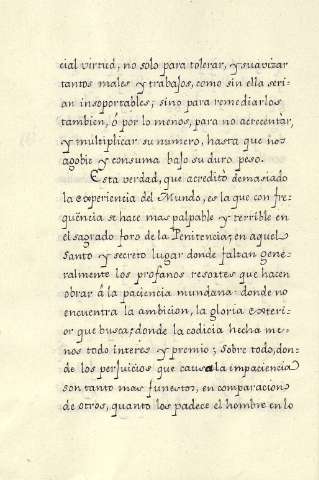 cial virtud, no solo para tolerar, y suavizar
tantos males y trabajos, como sin ella seri-
an insoportables; sino para remediarlos
tambien, ó por lo menos, para no acrecentar,
y multiplicar su numero, hasta que nos
agobie y consuma bajo su duro peso.
Esta verdad, que acreditò demasiado
la experiencia del Mundo, es la que con fre-
qüencia se hace mas palpable y terrible en
el sagrado foro de la Penitencia; en aquel
Santo y secreto lugar donde faltan gene-
ralmente los profanos resortes que hacen
obrar á la paciencia mundana: donde no
encuentra la ambicion, la gloria exteri-
or que busca; donde la codicia hecha me-
nos todo interes y premio; Sobre todo, don-
de los perjuicios que causa la impaciencia
son tanto mas funestos, en comparacion
de otros, quanto los padece el hombre en lo